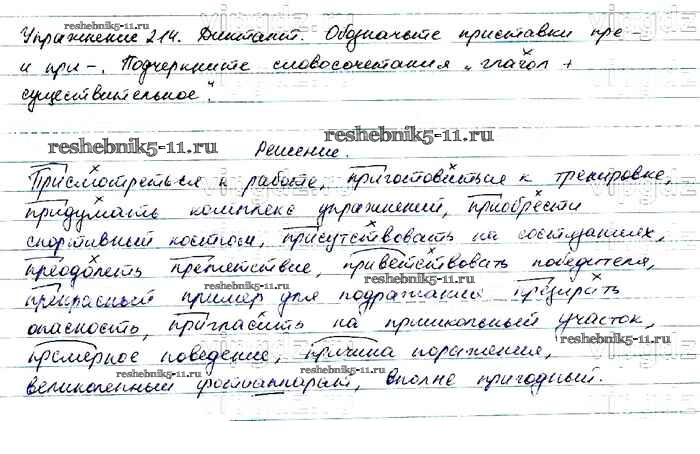 reshebnik5-11.ru
Упражнение 214. Диктант. Обозначьте приставки пре-
и при-. Подчеркните словосочетания „глагол +
существительное".
reshebnik5-11.ru reshebnik5-11.ru
Решение.
Присмотреться к работе, приготовиться к тренировке,
придумать комплекс упражнений, приобрести
спортивный костюм, присутствовать на состязаниях,
преодолеть препятствие, приветствовать победителя,
reshebnik5-11.ru
прекрасный пример для подражания презирать
опасность, пригласить на пришкольный участок,
reshebnik5-11.ru
примерное поведение, причина поражения,
reshebnik5-11.ru
великолепный фотоаппарат, вполне пригодный.